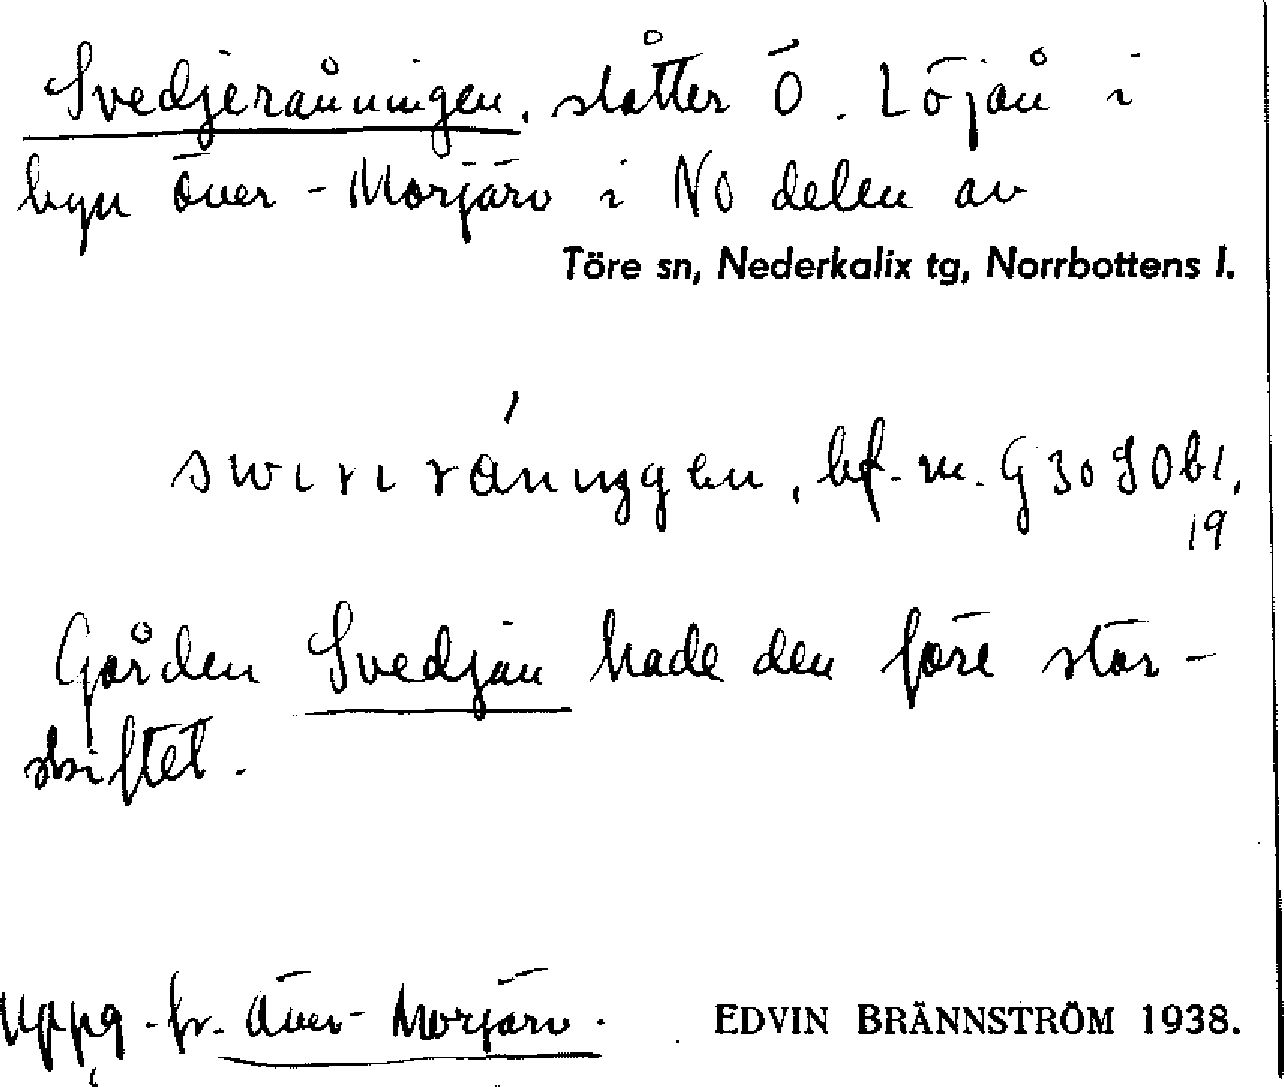 Svedjeråningen, slåtter Ö. Löjån i
byn Över-Morjärv i NO delen av
Töre sn, Nederkalix tg, Norrbottens l.
bf. m. G 30
19
Gården Svedjan hade den före stor-
skiftet.
Uppg. fr. Över-Morjärv.
EDVIN BRÄNNSTRÖM 1938.